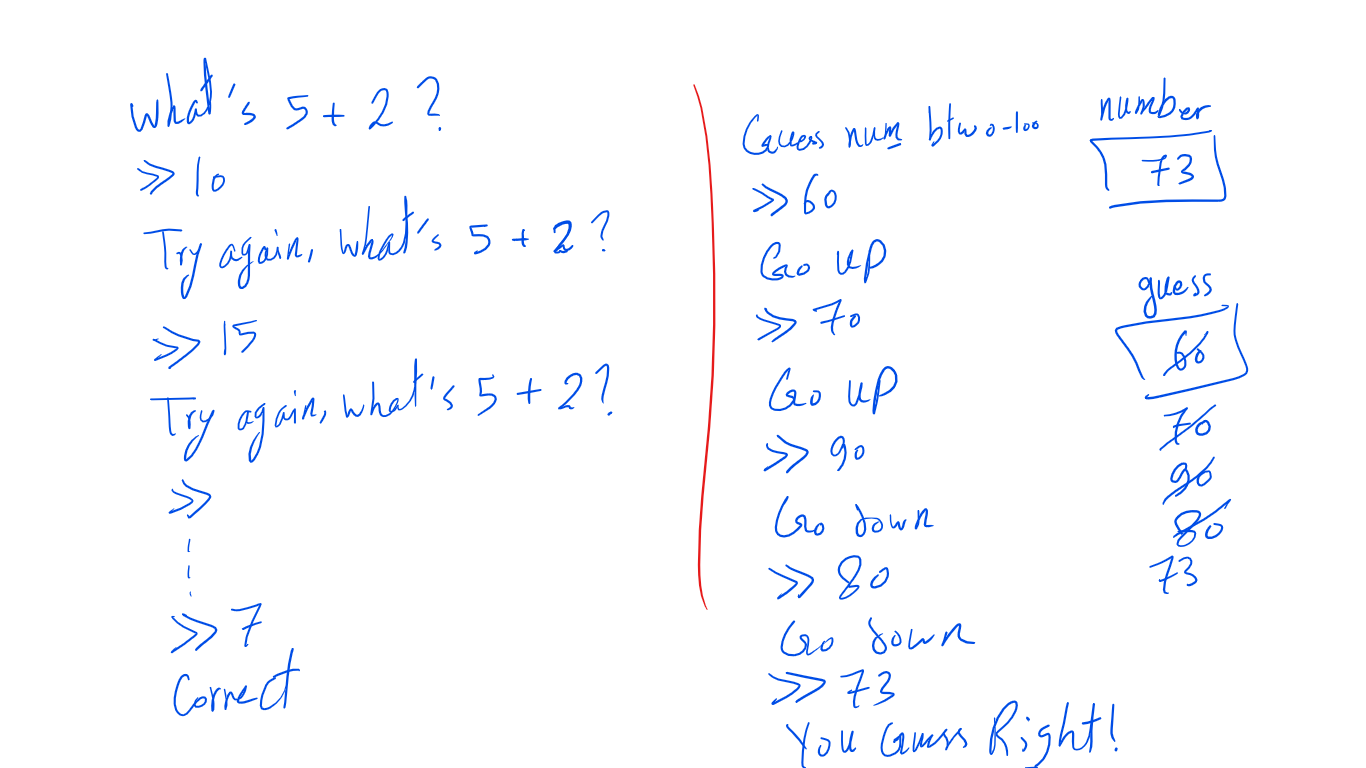 what's 5 + 2 ?
>> 10
Try again, what's 5 + 2 ?
>> 15
Try again, what's 5 + 2 ?
>>
>> 7
Correct
Guess num btw 0-100
>> 60
Go up
>> 70
Go up
>> 90
Go down
>> 80
Go down
>> 73
You Guess Right!
number
73
guess
60
70
90
80
73